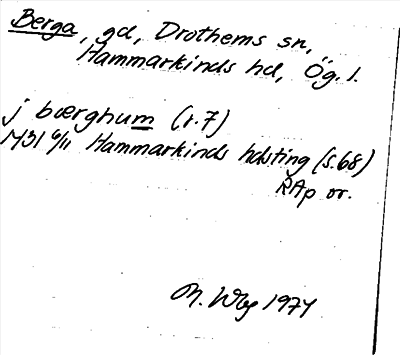 Berga, gd, Drothems sn,
Hammarkinds hd, Ög. l.
j bærghum (r.7)
1431 6/11 Hammarkinds hdsting (s.68)
RAp or.
M. Wbg 1974